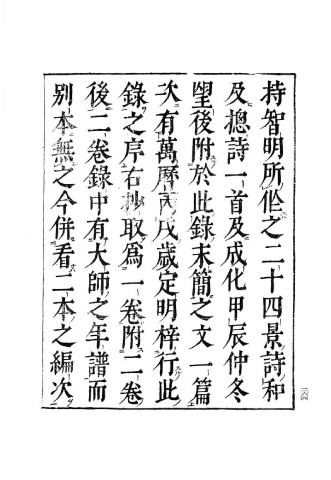 持智明所作之二十四景詩和
及摠詩一首及成化甲辰仲冬
望後附於此錄末簡之文一篇
次有萬曆丙戌歲定明梓行此
錄之序右抄取爲一卷附二卷
後二卷錄中有大師之年譜而
別本無之今併看二本之編次